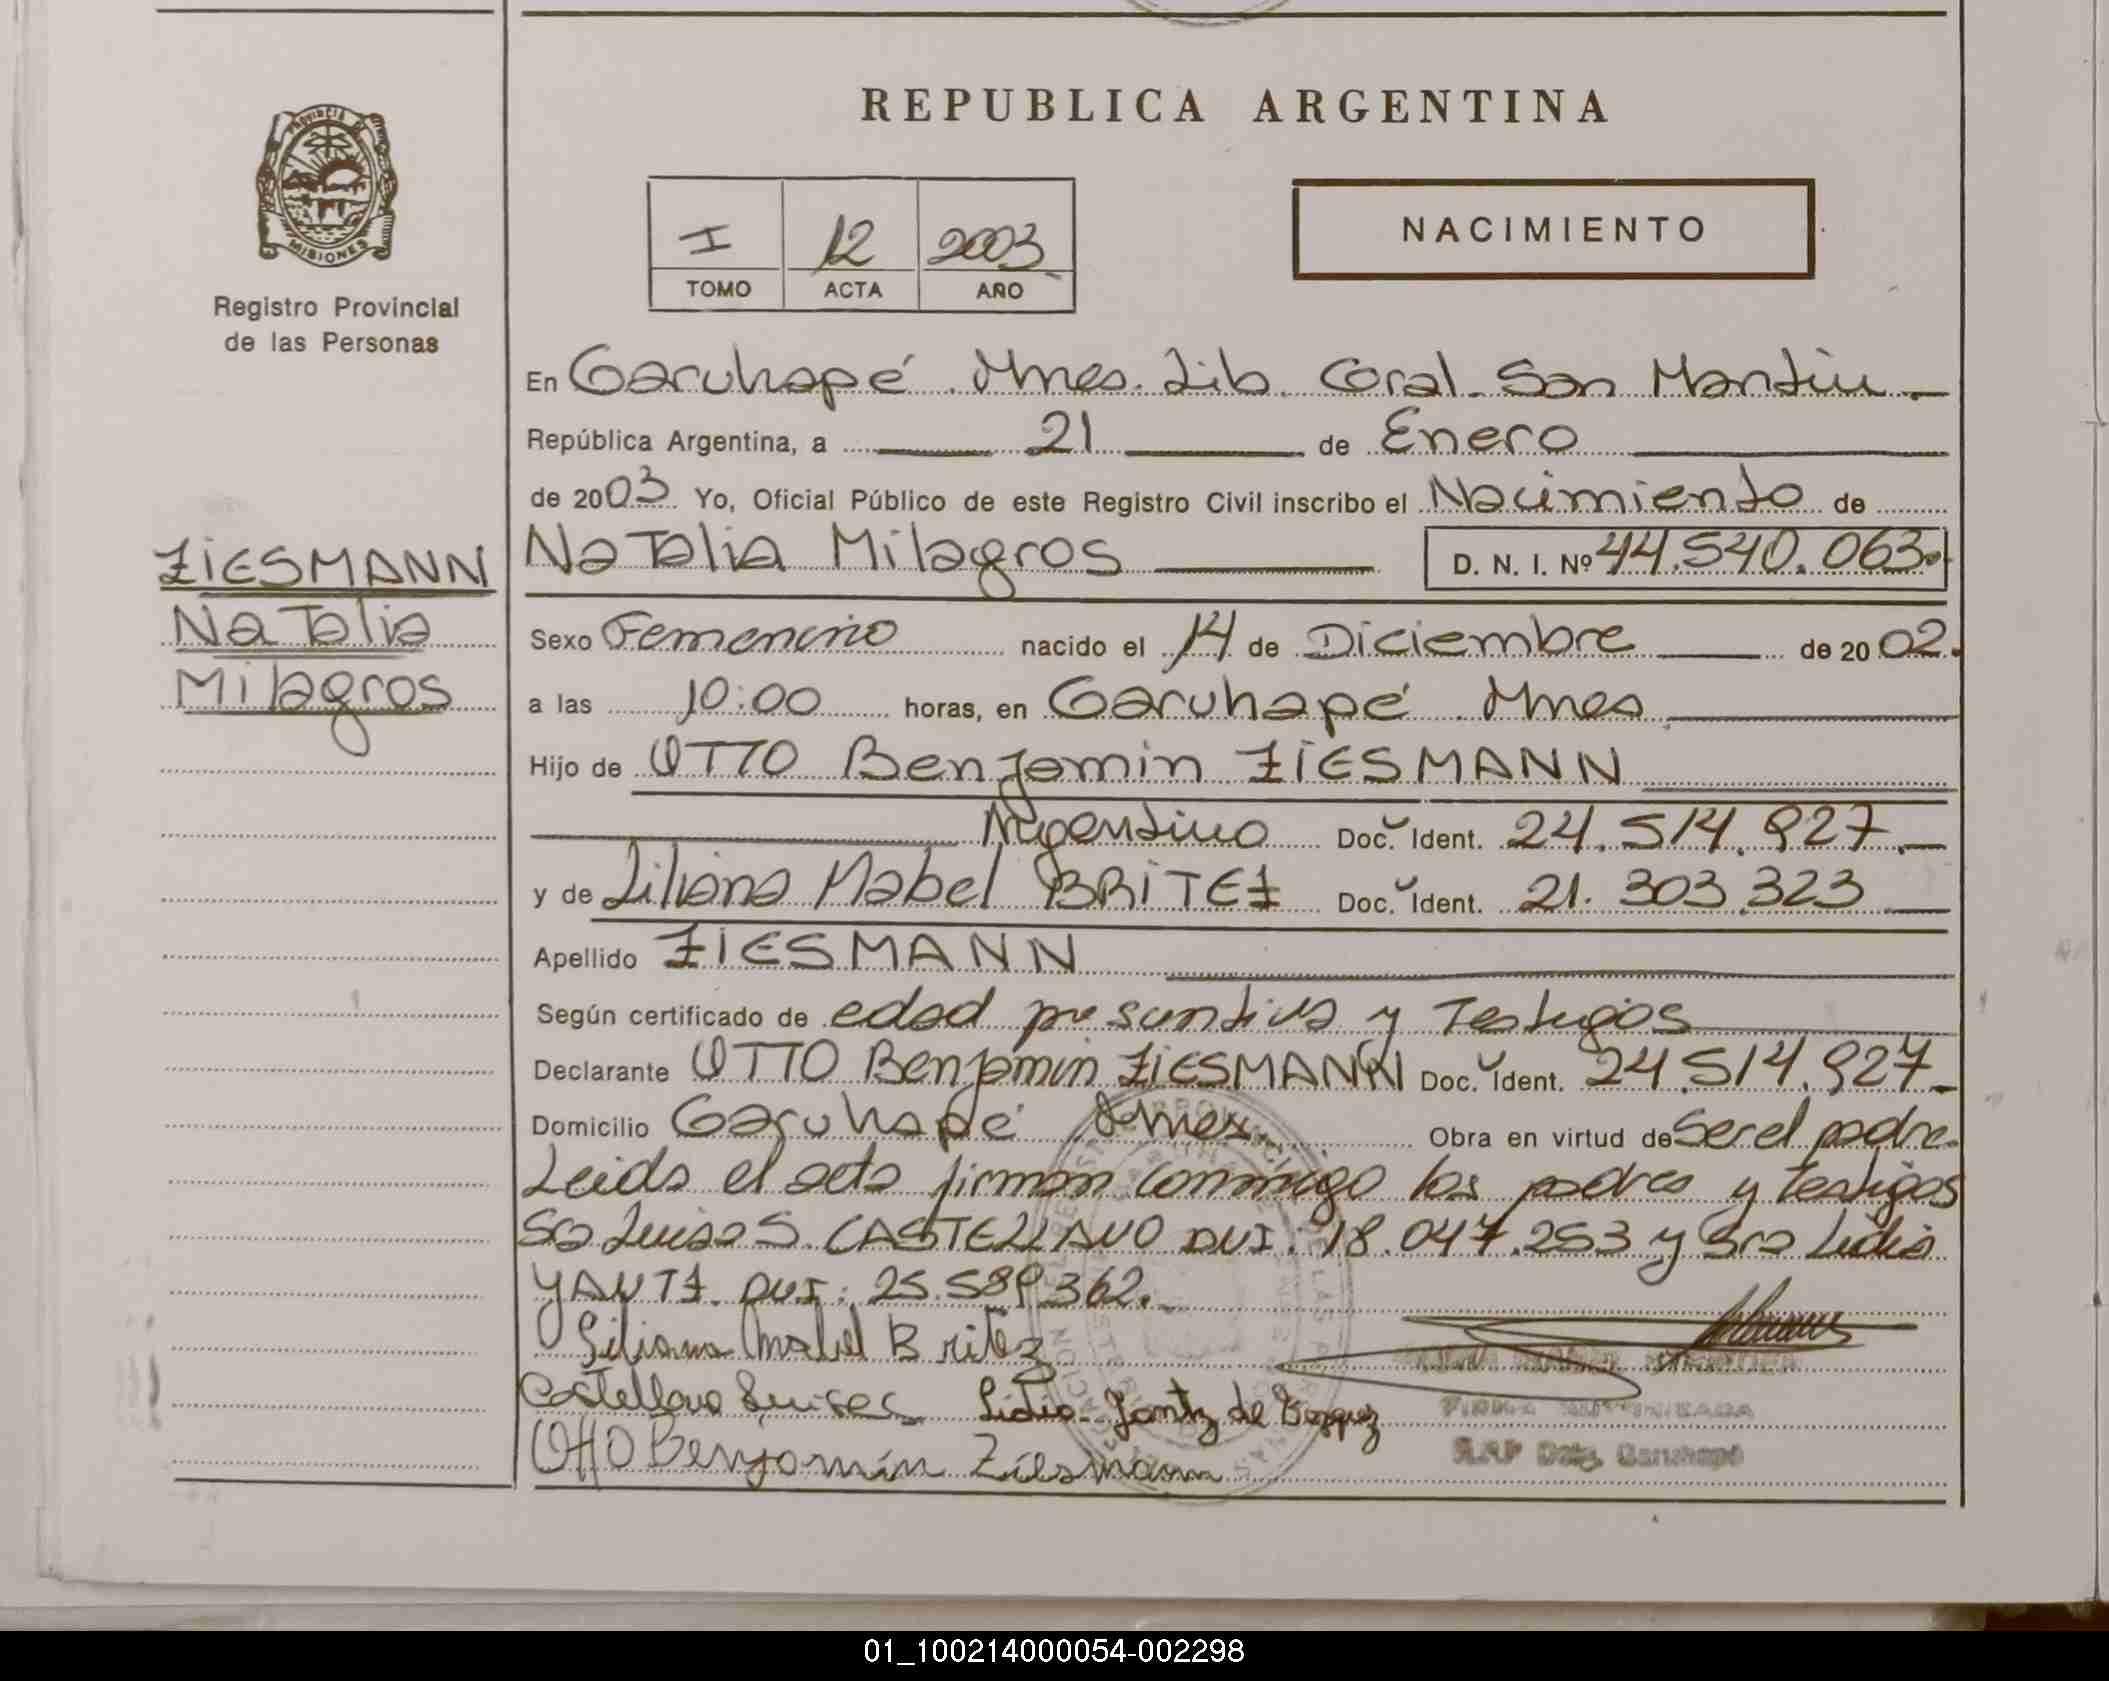 PROVINCIA DE
MISIONES
Registro Provincial
de las Personas
ZIESMANN
Natalia
Milagros
REPUBLICA ARGENTINA
I 12 2003
TOMO ACTA AÑO
NACIMIENTO
En Garuhapé Mnes. Lib. Gral. San Martín
República Argentina, a 21 de Enero
de 2003 Yo, Oficial Público de este Registro Civil inscribo el Nacimiento de
Natalia Milagros D. N. I. Nº 44.540.063.
Sexo Femenino nacido el 14 de Diciembre de 2002.
a las 10:00 horas, en Garuhapé Mnes
Hijo de OTTO Benjamin ZIESMANN
Argentino Doc. Ident. 24.514.927.
y de Liliana Mabel BRITEZ Doc. Ident. 21.303.323
Apellido ZIESMANN
Según certificado de edad presuntiva y Testigos
Declarante OTTO Benjamin ZIESMANN Doc. Ident. 24.514.927
Domicilio Garuhapé Mnes. Obra en virtud de Ser el padre.
Leida el acta firman conmigo los padres y testigos
Sra Luisa S. CASTELLANO DNI: 18.047.253 y Sra Lidia
YANTZ. DNI: 25.589.362.
Liliana Mabel Britez
Castellano Luisa S. Lidia Jantz de
Otto Benjamin Ziesmann
FIRMA AUTORIZADA
R.P.P Deleg. Garuhapé
01_100214000054-002298